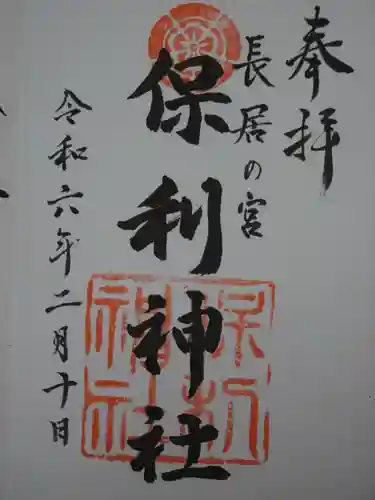 奉拝
長居の宮
保利神社
令和六年二月十日